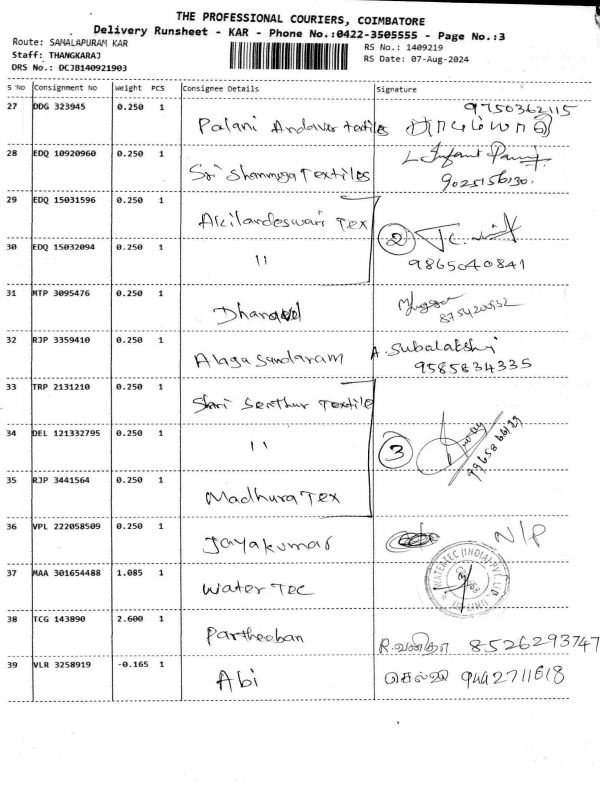 THE PROFESSIONAL COURIERS, COIMBATORE
Delivery Runsheet - KAR - Phone No.:0422-3505555 - Page No.:3
Route: SAMALAPURAM KAR
RS No.: 1409219
Staff: THANGKARAJ
RS Date: 07-Aug-2024
DRS No.: DCJB140921903
S No Consignment No Weight PCS Consignee Details Signature
27 DDG 323945 0.250 1 Palani Andavar textiles 9750362115
28 EDQ 10920960 0.250 1 Sri Shanmuga Textiles
9025156130.
29 EDQ 15031596 0.250 1 Akilandeswari Tex
30 EDQ 15032094 0.250 1 11 2 9865040841
31 MTP 3095476 0.250 1 Dhangvel
32 RJP 3359410 0.250 1 Alaga Sundaram A. Subalakshi
9585834335
33 TRP 2131210 0.250 1 Shri Senthur Textile
34 DEL 121332795 0.250 1 11 3
35 RJP 3441564 0.250 1 Madhura Tex
36 VPL 222058509 0.250 1 Jayakumar N/P
37 MAA 301654488 1.085 1 Water Tec WATERTEC (INDIA) PVT. LTD.
38 TCG 143890 2.600 1 Partheeban R.வனிதா 8526293747
39 VLR 3258919 -0.165 1 Abi செல்வி 9442711618